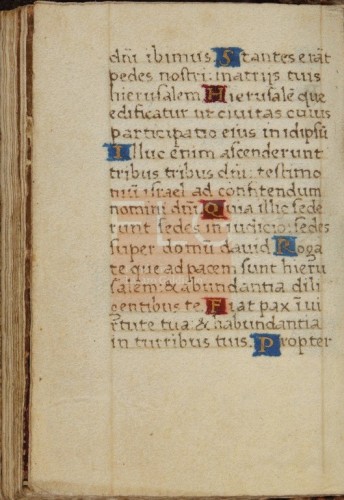 dm̄ ibimus. Stantes erāt
pedes nostri: in atriis tuis
hierusalem. Hierusalē que
edificatur ut civitas cuius
participatio eius in idipsū
Illuc enim ascenderunt
tribus tribus dm̄: testimo
niū israel ad confitendum
nomini dm̄. Quia illic sede
runt sedes in iudicio: sedes
super domū david. Roga
te que ad pacem sunt hieru
salem: & abundantia dili
gentibus te. Fiat pax ī vi
rtute tua: & habundantia
in turribus tuis. Propter